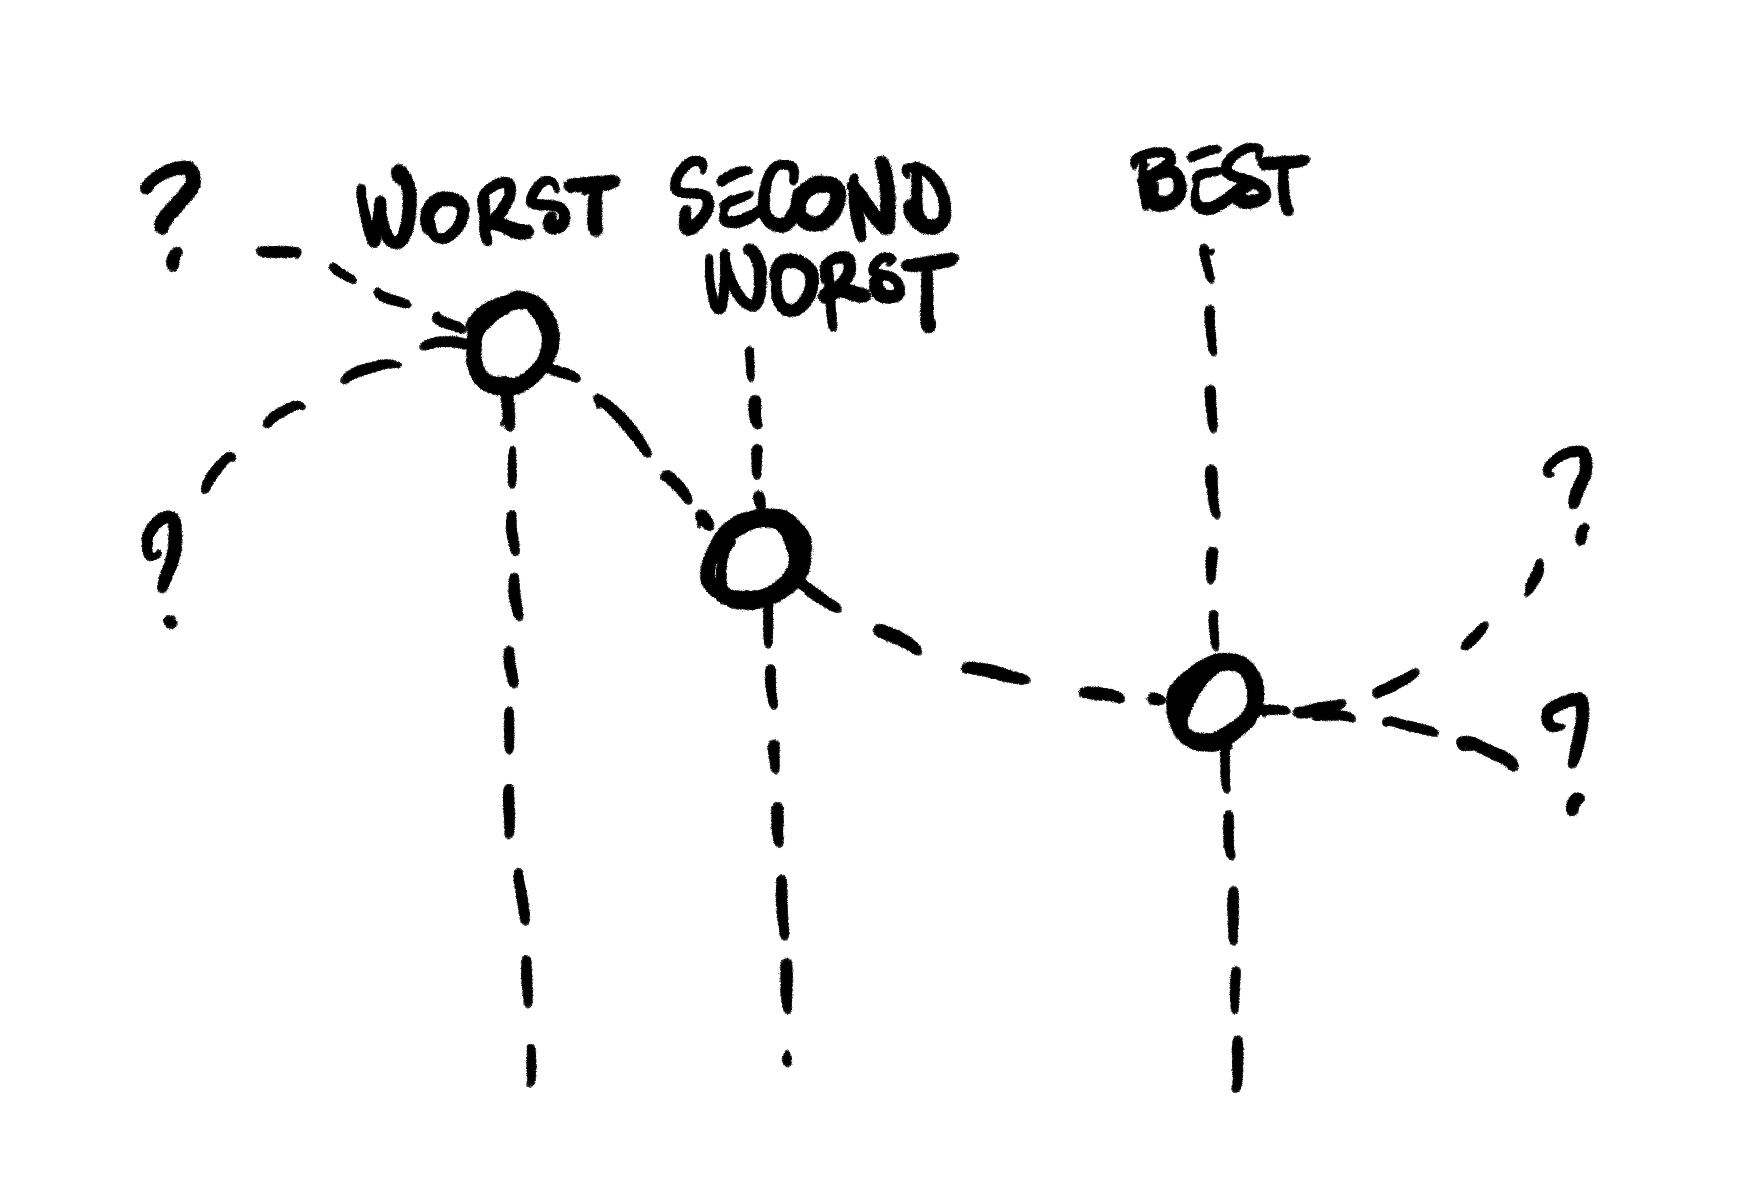 ?
WORST
SECOND
WORST
BEST
?
?
?